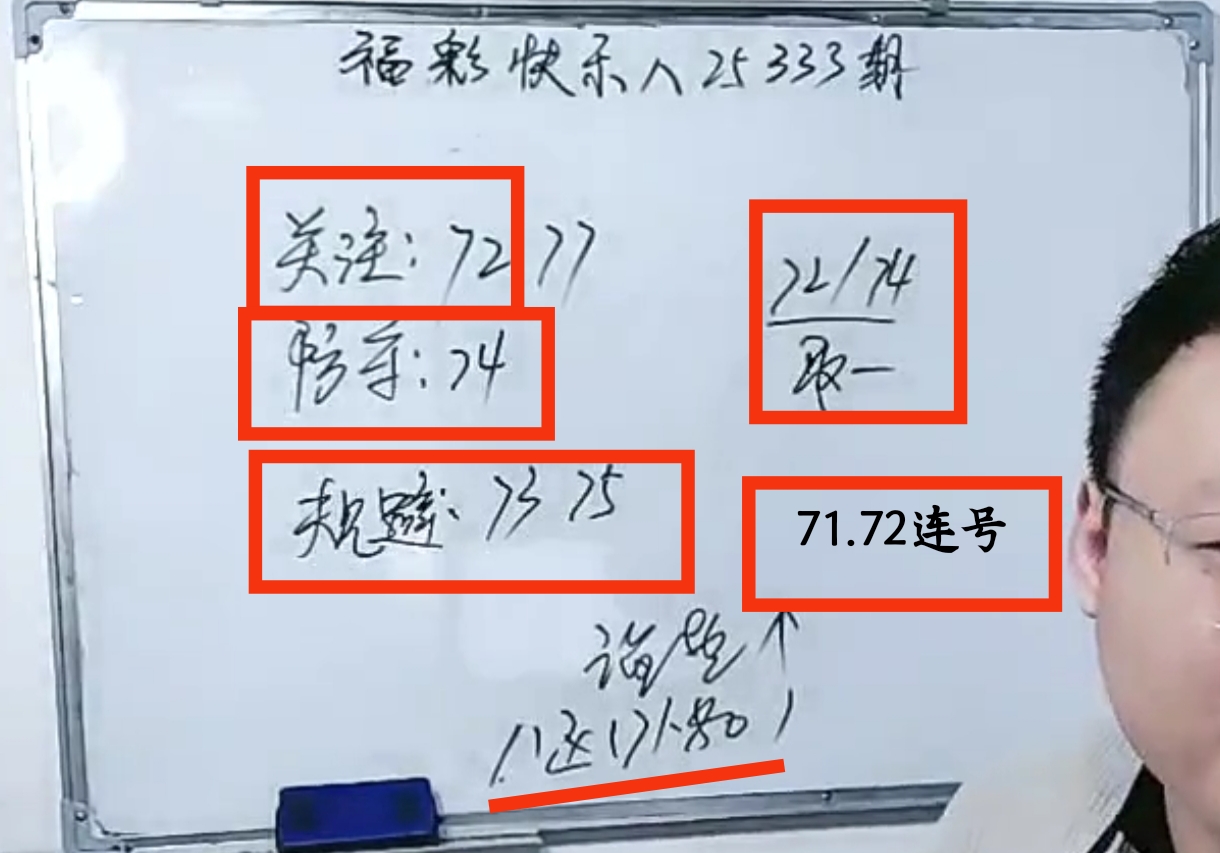 福彩快乐八25333期
关注:72 77
72/74
防守:74
取一
规避:73 75
71.72连号
谐楚↑
八区(71-80)